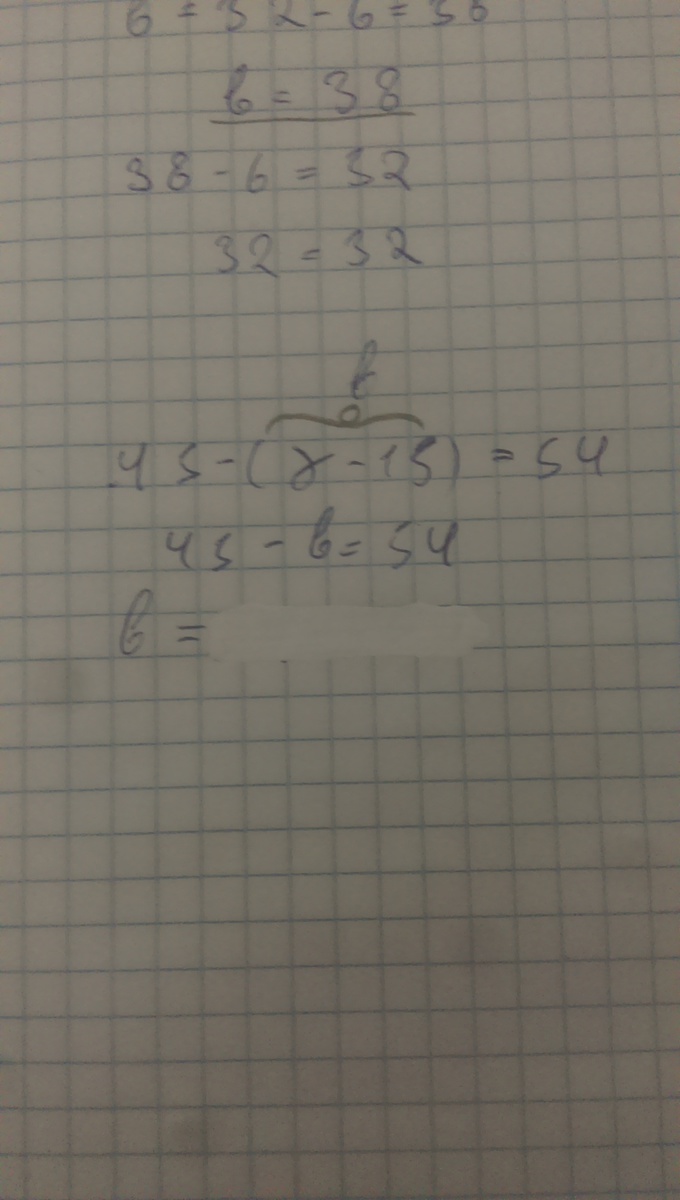 в = 32 - 6 = 38
в = 38
38 - 6 = 32
32 = 32
в
45 - (γ - 15) = 54
45 - в = 54
в =